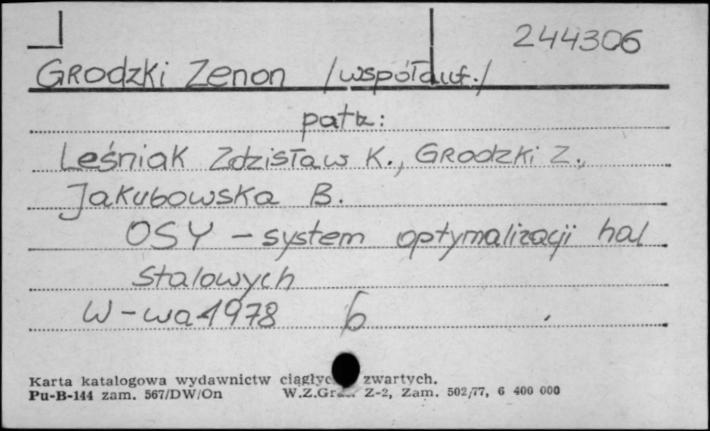 244306
Grodzki Zenon /współaut./
patrz:
Leśniak Zdzisław K., Grodzki Z.,
Jakubowska B.
OSY - system optymalizacji hal
stalowych
W-wa 1978 6
Karta katalogowa wydawnictw zwartych.
Pu-B-144 zam. 567/DW/On W.Z.Graf. Z-2, Zam. 502/77, 6 400 000